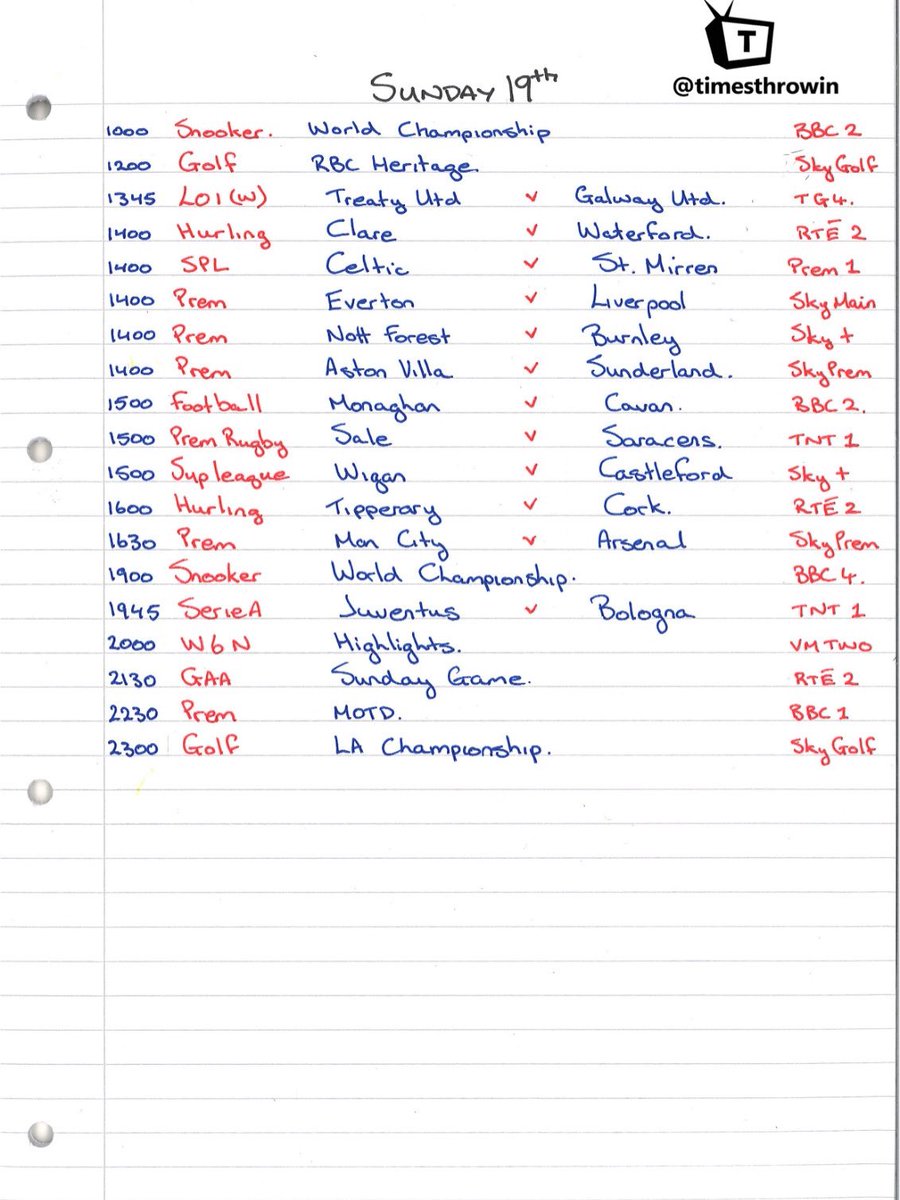 T
@timesthrowin
SUNDAY 19th
1000 Snooker. World Championship BBC 2
1200 Golf RBC Heritage. Sky Golf
1345 LOI (W) Treaty Utd v Galway Utd. TG4.
1400 Hurling Clare v Waterford. RTÉ 2
1400 SPL Celtic v St. Mirren Prem 1
1400 Prem Everton v Liverpool Sky Main
1400 Prem Nott Forest v Burnley Sky +
1400 Prem Aston Villa v Sunderland. Sky Prem
1500 Football Monaghan v Cavan. BBC 2.
1500 Prem Rugby Sale v Saracens. TNT 1
1500 Sup league Wigan v Castleford Sky +
1600 Hurling Tipperary v Cork. RTÉ 2
1630 Prem Man City v Arsenal Sky Prem
1900 Snooker World Championship. BBC 4.
1945 Serie A Juventus v Bologna TNT 1
2000 W6N Highlights. VM TWO
2130 GAA Sunday Game. RTÉ 2
2230 Prem MOTD. BBC 1
2300 Golf LA Championship. Sky Golf